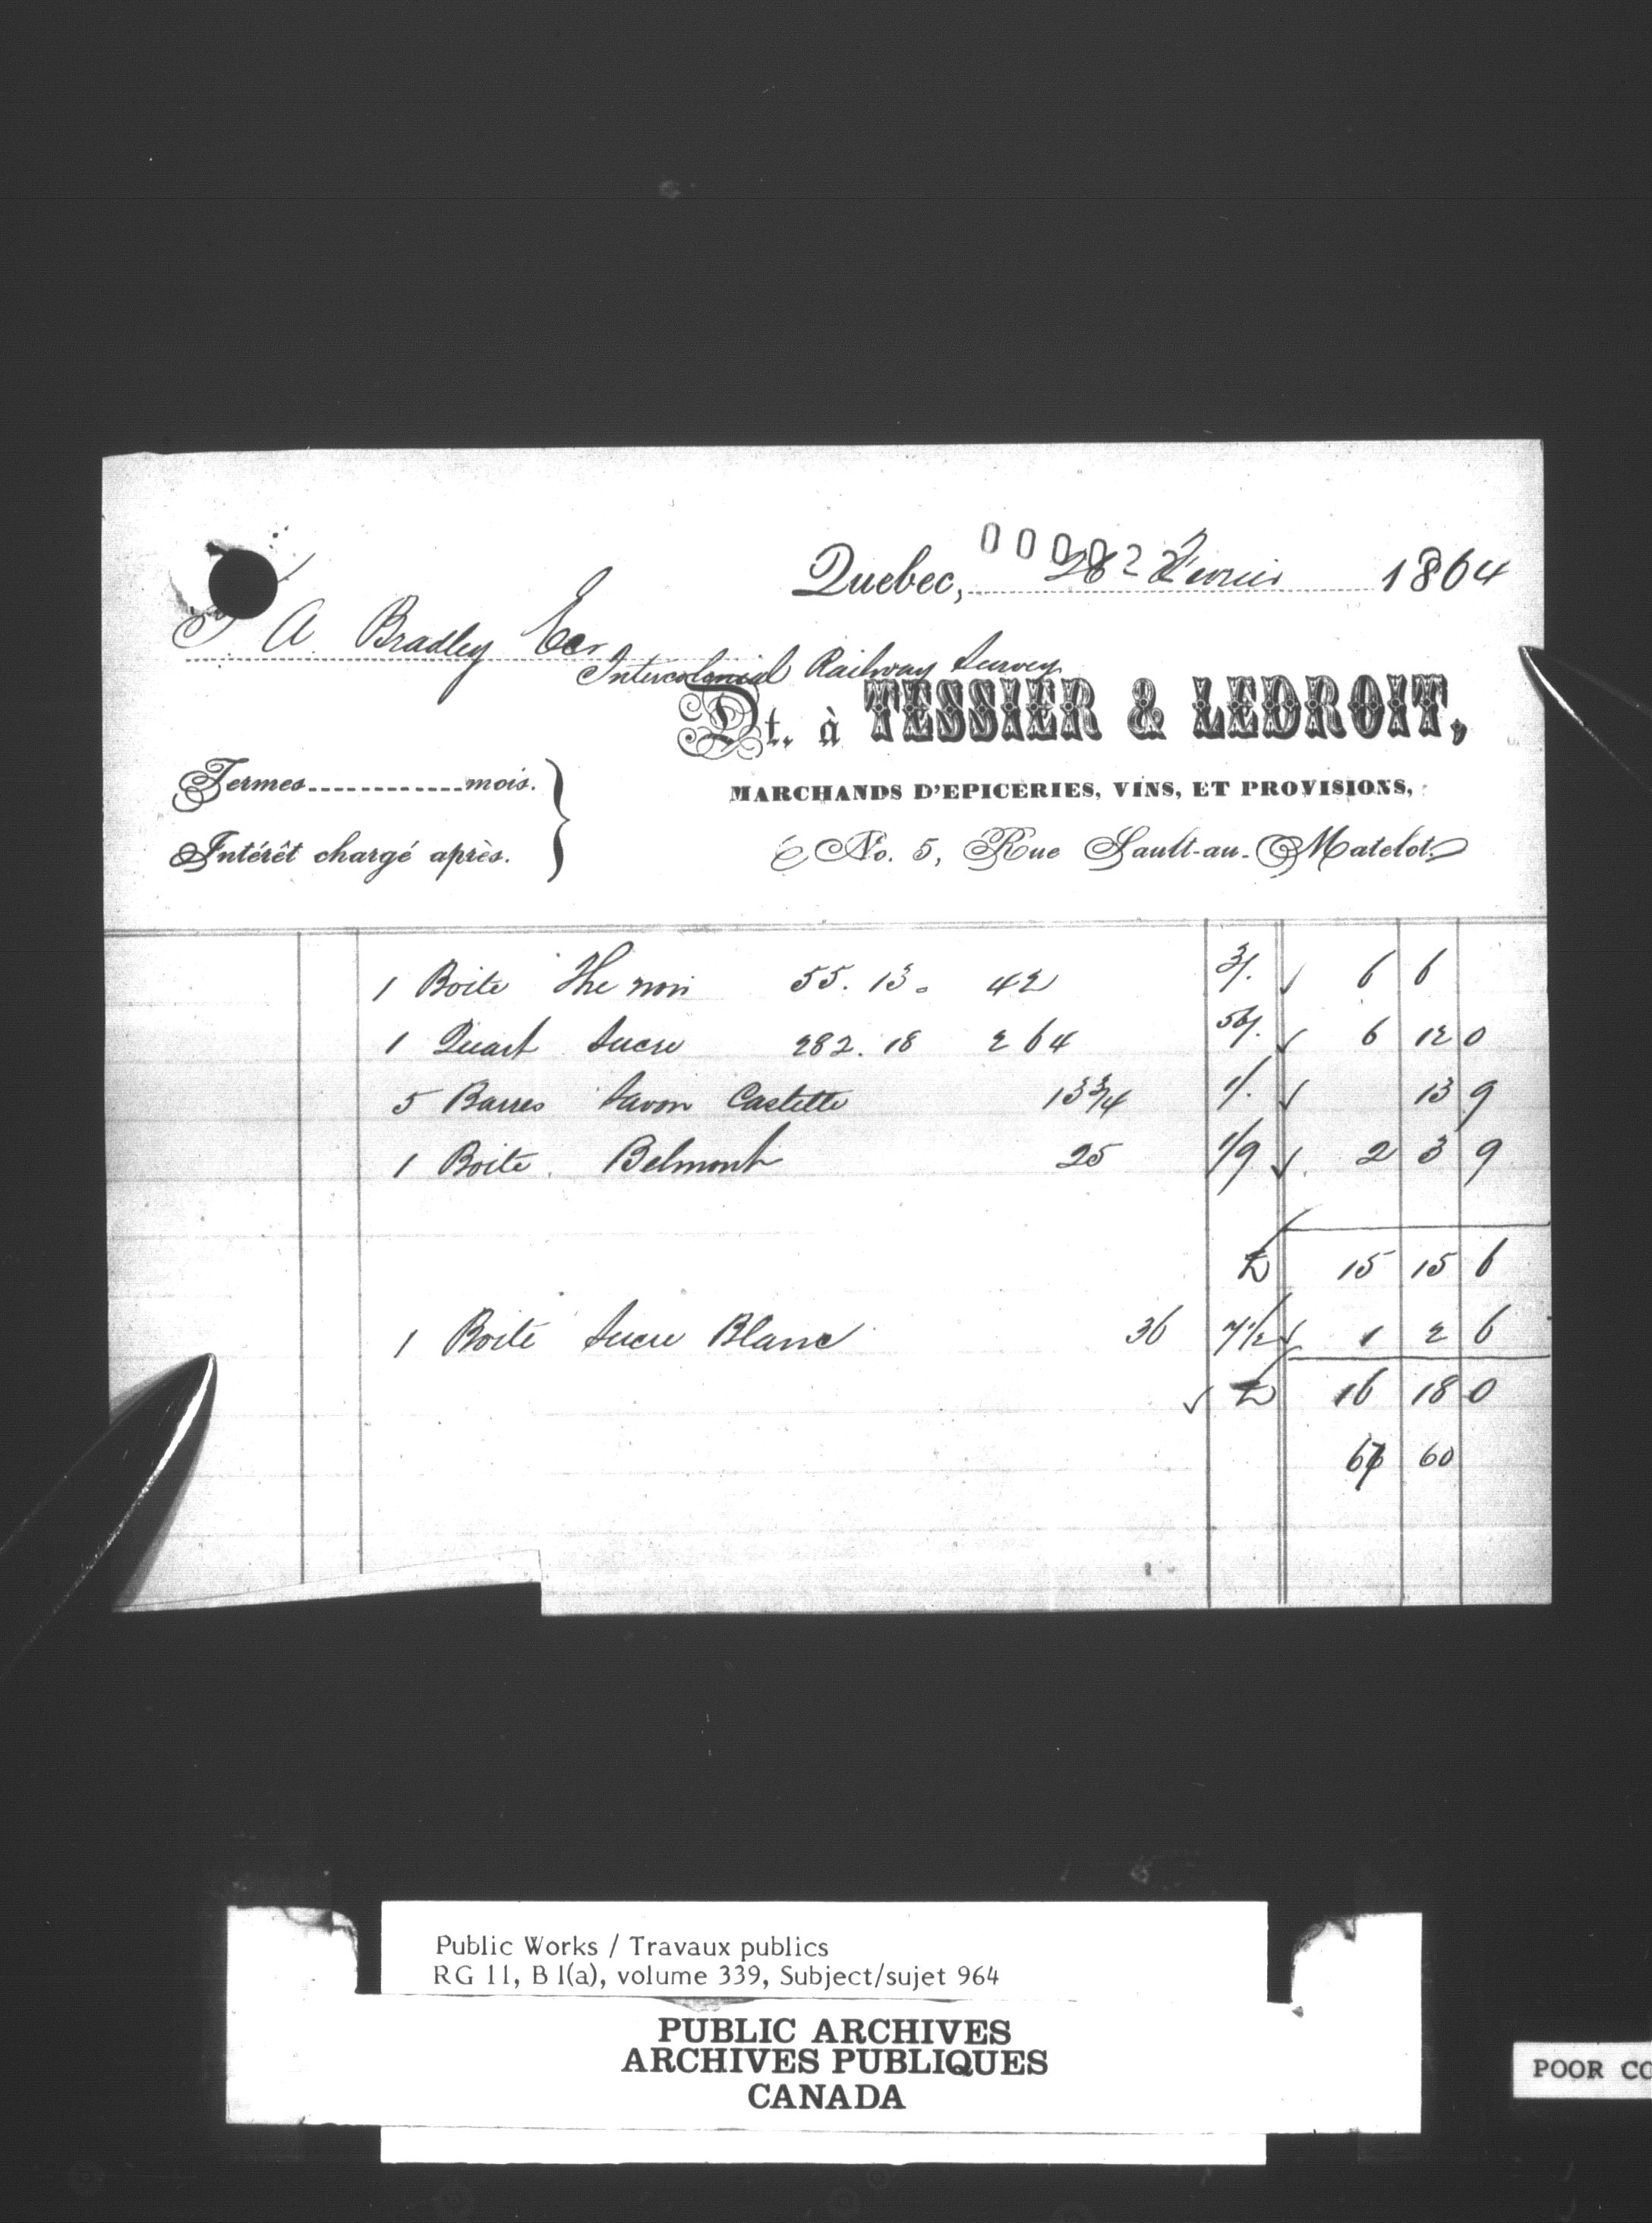 000082
Quebec, 26 Fevrier 1864
A. Bradley Ecr
Intercolonial Railway Survey
Dt. à TESSIER & LEDROIT,
Termes.............mois.
MARCHANDS D'EPICERIES, VINS, ET PROVISIONS,
Intérêt chargé après.
No. 5, Rue Sault-au-Matelot.
1 Boite The noir 55. 13. 42 3/. 6 6
1 Quart Sucre 282. 18 264 50/. 6 12 0
5 Barres Savon Castille 13 3/4 1/. 13 9
1 Boite Belmont 25 1/9 2 3 9
£ 15 15 6
1 Boite Sucre Blanc 36 7 1/2 1 2 6
£ 16 18 0
67 60
Public Works / Travaux publics
RG 11, B 1(a), volume 339, Subject/sujet 964
PUBLIC ARCHIVES
ARCHIVES PUBLIQUES
CANADA
POOR CO